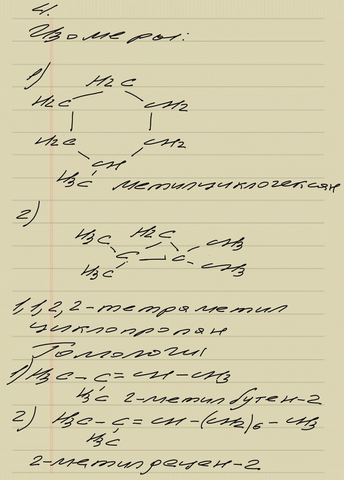 4.
Изомеры:
1)
H2C
H2C CH2
H2C CH2
CH
H3C метилциклогексан
2)
H3C H2C CH3
C — C
H3C CH3
1,1,2,2-тетраметил
циклопропан
Гомологи:
1) H3C – C = CH – CH3
H3C 2-метилбутен-2
2) H3C – C = CH – (CH2)6 – CH3
H3C
2-метилдецен-2